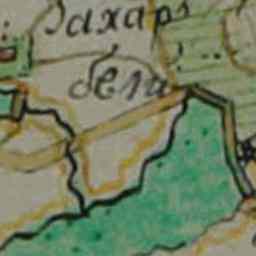 Захаръ
бела